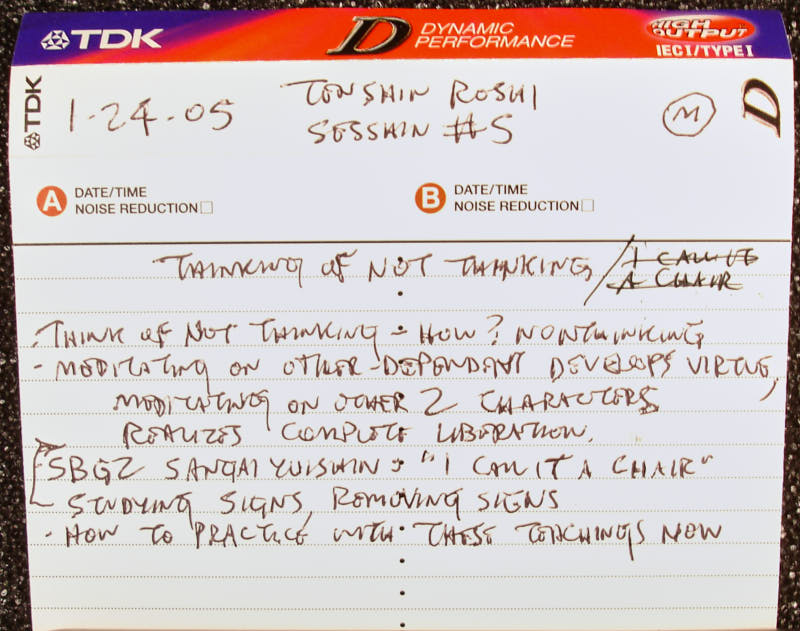 TDK D DYNAMIC PERFORMANCE HIGH OUTPUT IEC I/TYPE I
TDK D
1-24-05 TENSHIN ROSHI M
SESSHIN #5
A DATE/TIME NOISE REDUCTION
B DATE/TIME NOISE REDUCTION
THINKING OF NOT THINKING / I CALL IT
A CHAIR
· THINK OF NOT THINKING - HOW? NONTHINKING
- MEDITATING ON OTHER-DEPENDANT DEVELOPS VIRTUE,
MEDITATING ON OTHER 2 CHARACTERS
REALIZES COMPLETE LIBERATION.
SBGZ SANGAI YUISHIN - "I CALL IT A CHAIR"
STUDYING SIGNS, REMOVING SIGNS
- HOW TO PRACTICE WITH THESE TEACHINGS NOW